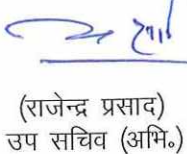 (राजेन्द्र प्रसाद)
उप सचिव (अभि०)